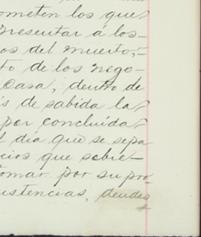 ometen los que
presentar á los
os del muerto,
to de los nego-
casa, dentro de
s de sabida la
por concluida
l dia que se sepa
cios que sobre-
tomar por su pro
istencias, deudas